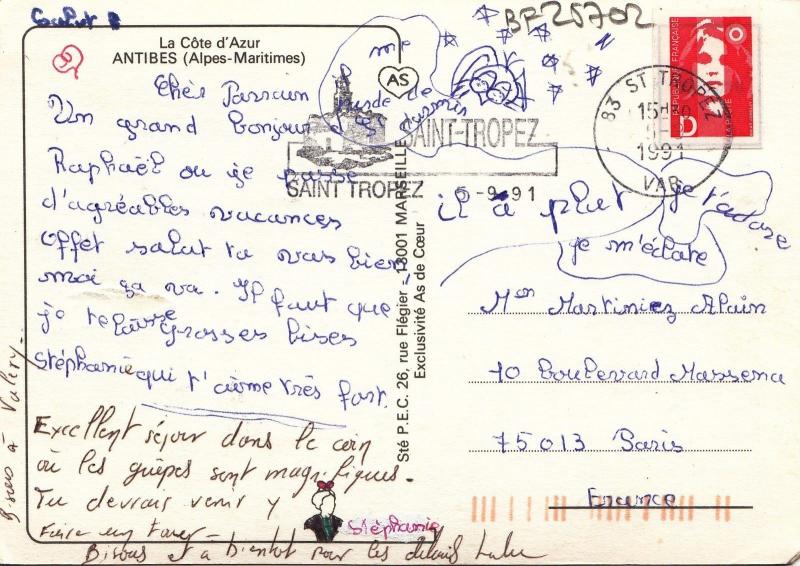 Salut
BF25702
La Côte d'Azur
ANTIBES (Alpes-Maritimes)
Chèr Parrain
Un grand bonjour de
Raphaël ou je passe
d'agréables vacances
offet salut tu vas bien
moi ça va. Il faut que
je te laisse grosses bises
Stéphanie qui t'aime très fort.
Excellent séjour dans le coin
où les guêpes sont magnifiques.
Tu devrais venir y
faire un tour -
Bisous et à bientot pour les détails Lulu
Bisous à Valéry -
Stéphanie
AS
Sté P.E.C. 26, rue Flégier - 13001 MARSEILLE
Exclusivité As de Cœur
SAINT-TROPEZ
SAINT TROPEZ 5-9-91
83 ST TROPEZ
15H30
5-9
1991
VAR
REPUBLIQUE FRANÇAISE
LA POSTE
D
il a plut
je t'adore
je m'éclate
Mon Martiniez Alain
70 boulevard Massena
75013 Paris
France